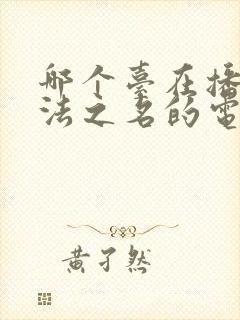 哪个臺在播
法之名的電
黄孑然